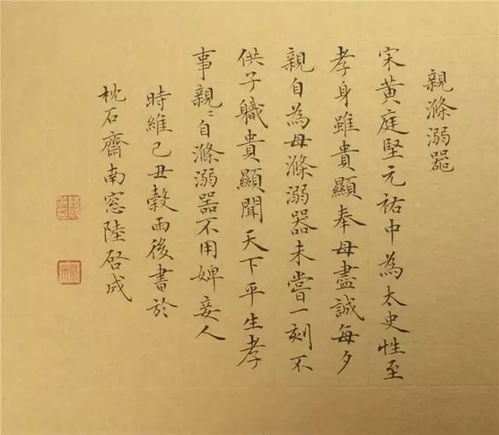 親滌溺器
宋黃庭堅元祐中為太史性至
孝身雖貴顯奉母盡誠每夕
親自為母滌溺器未嘗一刻不
供子職貴顯聞天下平生孝
事親親自滌溺器不用婢妾人
時維己丑穀雨後書於
枕石齋南窓陸啓成